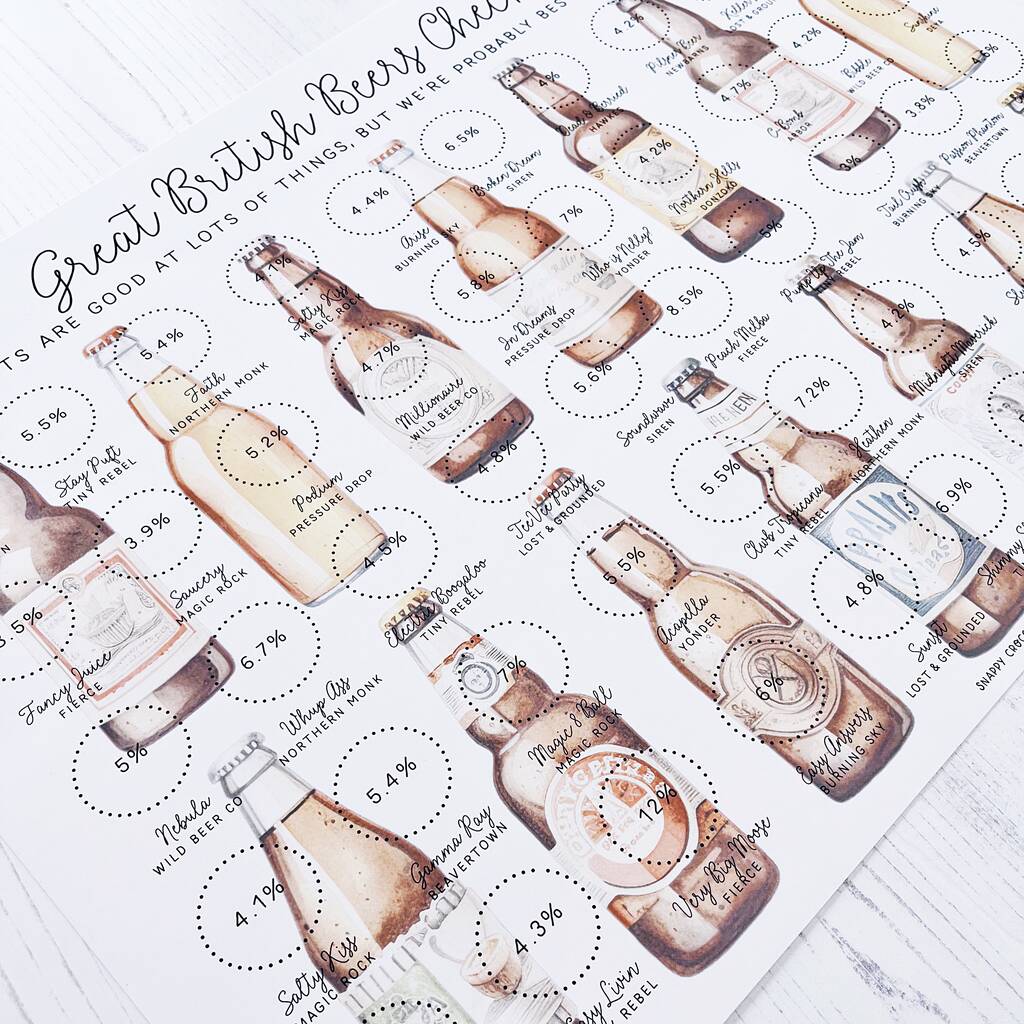 Great British Beers
TS ARE GOOD AT LOTS OF THINGS, BUT WE'RE PROBABLY BES
5.5%
Stay Puft
TINY REBEL
5.4%
Faith
NORTHERN MONK
Salty Kiss
MAGIC ROCK
4.4%
Arise
BURNING SKY
6.5%
Broken Dream
SIREN
4%
Dead & Berried
HAWKS
4.2%
3.9%
Saucery
MAGIC ROCK
5.2%
Podium
PRESSURE DROP
7%
Millionaire
WILD BEER CO
5.8%
In Dreams
PRESSURE DROP
7%
Who is Nelly?
YONDER
4.2%
Northern Hells
DONZOKO
4.7%
C-Bomb
4.2%
Bibble
WILD BEER CO
3.5%
Fancy Juice
FIERCE
6.7%
Whup Ass
NORTHERN MONK
4.5%
Electric Boogaloo
TINY REBEL
4.8%
TeeVee Party
LOST & GROUNDED
5.6%
Soundwave
SIREN
8.5%
Peach Melba
FIERCE
5%
Pump up the Jam
TINY REBEL
3%
BURNING
3.8%
Passion Phantom
BEAVERTOWN
5%
Nebula
WILD BEER CO
5.4%
Gamma Ray
BEAVERTOWN
7%
Magic 8 Ball
MAGIC ROCK
5.5%
Acapella
YONDER
5.5%
Club Tropicana
TINY REBEL
7.2%
Heathen
NORTHERN MONK
4.2%
Midnight Maverick
SIREN
4.5%
4.1%
Salty Kiss
MAGIC ROCK
4.3%
Livin
REBEL
12%
Very Big Moose
FIERCE
6%
Easy Answers
BURNING SKY
4.8%
Sunset
LOST & GROUNDED
6.9%
Shimmy
SNAPPY